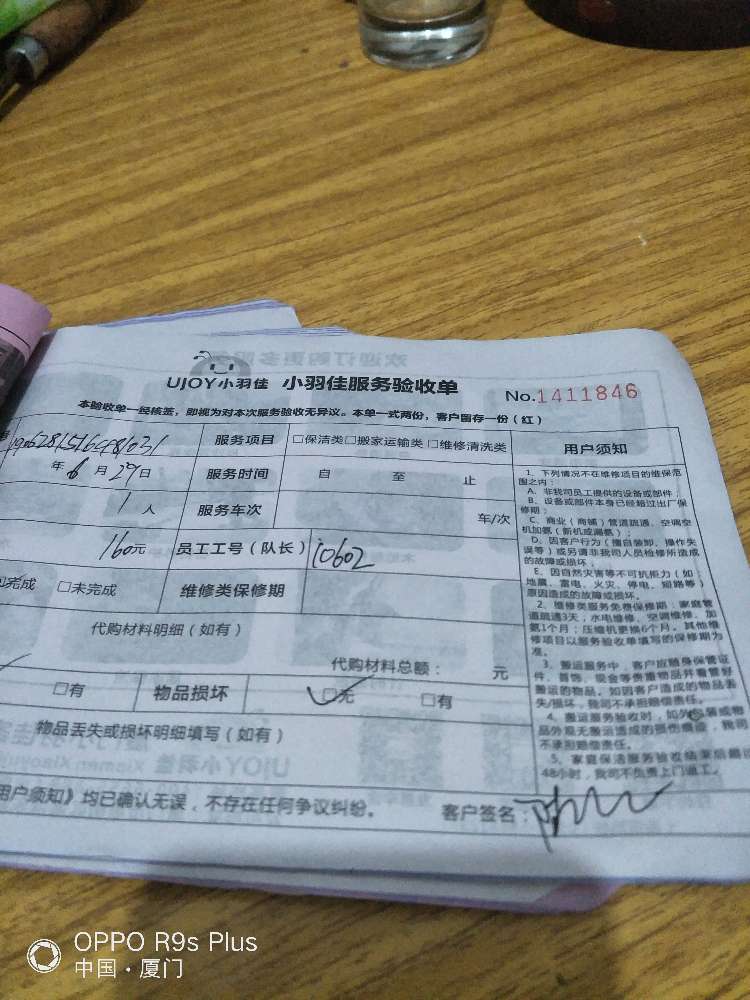 UJOY小羽佳 小羽佳服务验收单 No.1411846
本验收单一经核签，即视为对本次服务验收无异议。本单一式两份，客户留存一份（红）
服务项目 □保洁类□搬家运输类 □维修清洗类 用户须知
年6月29日 服务时间 自 至 止
1人 服务车次 车/次
160元 员工工号（队长） 10602
完成 □未完成 维修类保修期
代购材料明细（如有）
代购材料总额： 元
□有 物品损坏 □无 □有
物品丢失或损坏明细填写（如有）
用户须知》均已确认无误，不存在任何争议纠纷。 客户签名：
1、下列情况不在维修项目的维保范
围之内：
A、非我司员工提供的设备或部件；
B、设备或部件本身已经超过出厂保
修期；
C、商业（商铺）管道疏通、空调空
机加氨（新机或漏氨）；
D、因客户行为（擅自装卸、操作失
误等）或另请非我司人员检修所造成
的故障或损坏；
E、因自然灾害等不可抗拒力（如：
地震、雷电、火灾、停电、短路等）
原因造成的故障或损坏。
2、维修类服务免费保修期：家庭管
道疏通3天；水电维修、空调维修、加
氨1个月；压缩机更换6个月。其他维
修项目以服务验收单填写的保修期为
准。
3、搬运服务中，客户应随身保管证
件、首饰、现金等贵重物品并看管好
搬运的物品。如因客户造成的物品丢
失/损坏，我司不承担赔偿责任。
4、搬运服务验收时，如外包装或物
品外观无搬运造成的损伤痕迹，我司
不承担赔偿责任。
5、家庭保洁服务验收结束后超过
48小时，我司不负责上门返工。
OPPO R9s Plus
中国·厦门